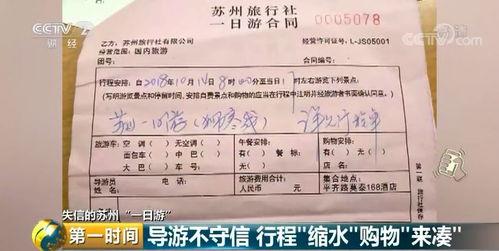 CCTV 2
财经
CCTV.com
央视网
苏州旅行社
一日游合同
0005078
乙方：苏州旅行社有限公司
经营许可证号：L-JS05001
经营范围：国内旅游
团号：
合同编号：
行程安排：自2018年10月14日8时00分至当日17时左右游览下列景点：
(写明游览景点和停留时间，安排自费景点和购物的应当在行程中注明并经旅游者书面确认同意。)
苏州一日游
详见行程单
旅游车：空调（ ）无空调（ ）
午餐安排：
购物安排：
面包车（ ）中巴（ ）
有（ ）餐标（ ）
有（ ）无（ ）
大巴（ ）车号（ ）
无（ ）
店名：
导游员
电话：
旅游费用合计：
集合地点：
姓名：
人民币 元
平齐路莫泰168酒店
第一联
失信的苏州“一日游”
第一时间
导游不守信 行程“缩水”购物“来凑”